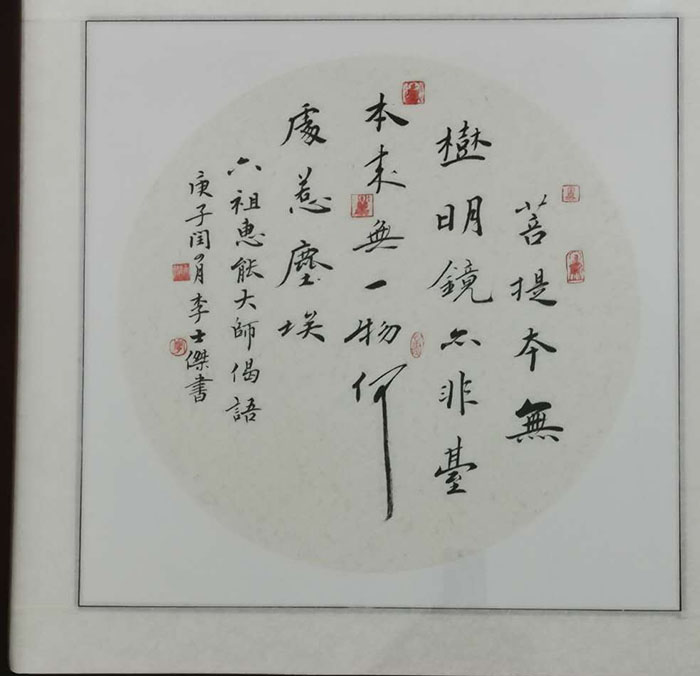 菩提本無
樹明鏡亦非臺
本来無一物何
處惹塵埃
六祖惠能大師偈語
庚子閏月李士傑書